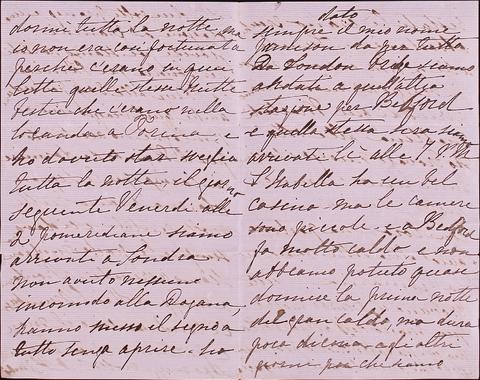 dormi tutta la notte, ma
io non era così fortunata
perchè c'erano in quei
letti quelle stesse brutte
bestie che c'erano nella
locanda a Torino, e
ho dovuto star sveglia
tutta la notte. il giorno
seguente Venerdi alle
2 pomeridiane siamo
arrivati a Londra
non avuto nessuno
incomodo alla Dogana,
hanno messo il segno a
tutto senza aprire. ho
dato
sempre il mio nome
Jamison da per tutto
Da London siamo
andati a quell'altra
stazione per Bedford
e quella stessa sera siamo
arrivati lì alle 7
Isabella ha un bel
casino ma le camere
sono piccole. e a Bedford
fa molto caldo e non
abbiamo potuto quasi
dormire la prima notte
del gran caldo, ma dura
poco dicono. agli altri
giorni poi che siamo